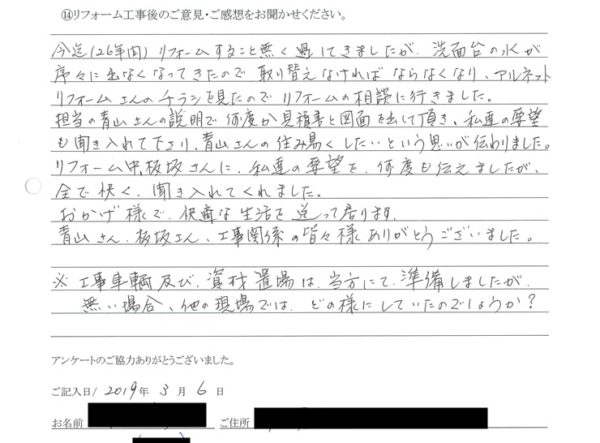 ⑭リフォーム工事後のご意見・ご感想をお聞かせください。
今迄(26年間)リフォームすること無く過してきましたが、洗面台の水が
序々に出なくなってきたので取り替えなければならなくなり、アルネット
リフォームさんのチラシを見たのでリフォームの相談に行きました。
担当の青山さんの説明で何度か見積書と図面を出して頂き、私達の要望
も聞き入れて下さり、青山さんの住み易くしたいという思いが伝わりました。
リフォーム中、板坂さんに、私達の要望を、何度も伝えましたが、
全て快く、聞き入れてくれました。
おかげ様で、快適な生活を送って居ります。
青山さん、板坂さん、工事関係の皆々様ありがとうございました。
※ 工事車輌及び、資材置場は、当方にて、準備しましたが、
無い場合、他の現場では、どの様にしていたのでしょうか?
アンケートのご協力ありがとうございました。
ご記入日/ 2019年 3月 6日
お名前 ご住所